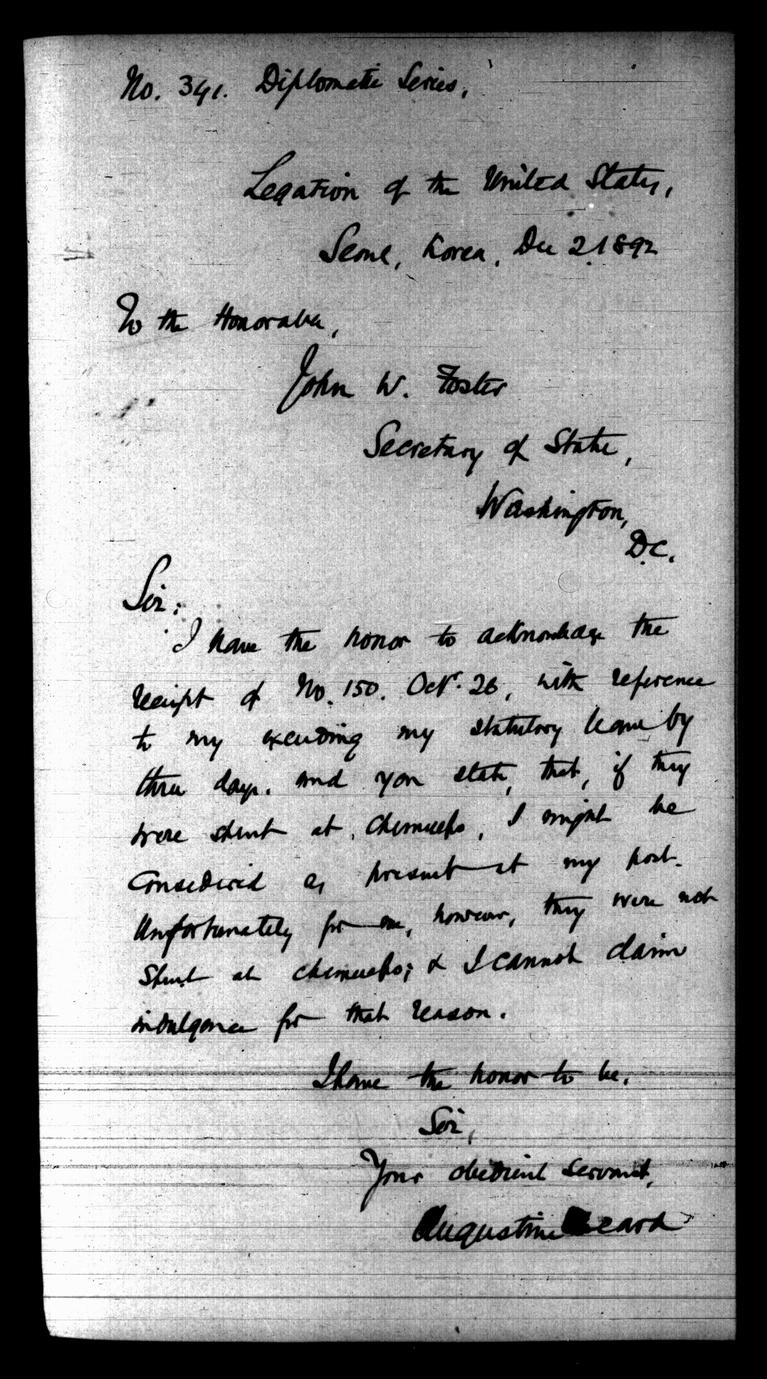 No. 341. Diplomatic Series.
Legation of the United States,
Seoul, Korea, Dec 2. 1892
To the Honorable,
John W. Foster
Secretary of State,
Washington,
D.C.
Sir:
I have the honor to acknowledge the
receipt of No. 150. Oct. 26, with reference
to my exceeding my statutory leave by
three days. And you state, that, if they
were spent at Chemulpo, I might be
considered as present at my post.
Unfortunately for me, however, they were not
spent at Chemulpo; & I cannot claim
indulgence for that reason.
I have the honor to be,
Sir,
Your obedient servant,
Augustine Heard